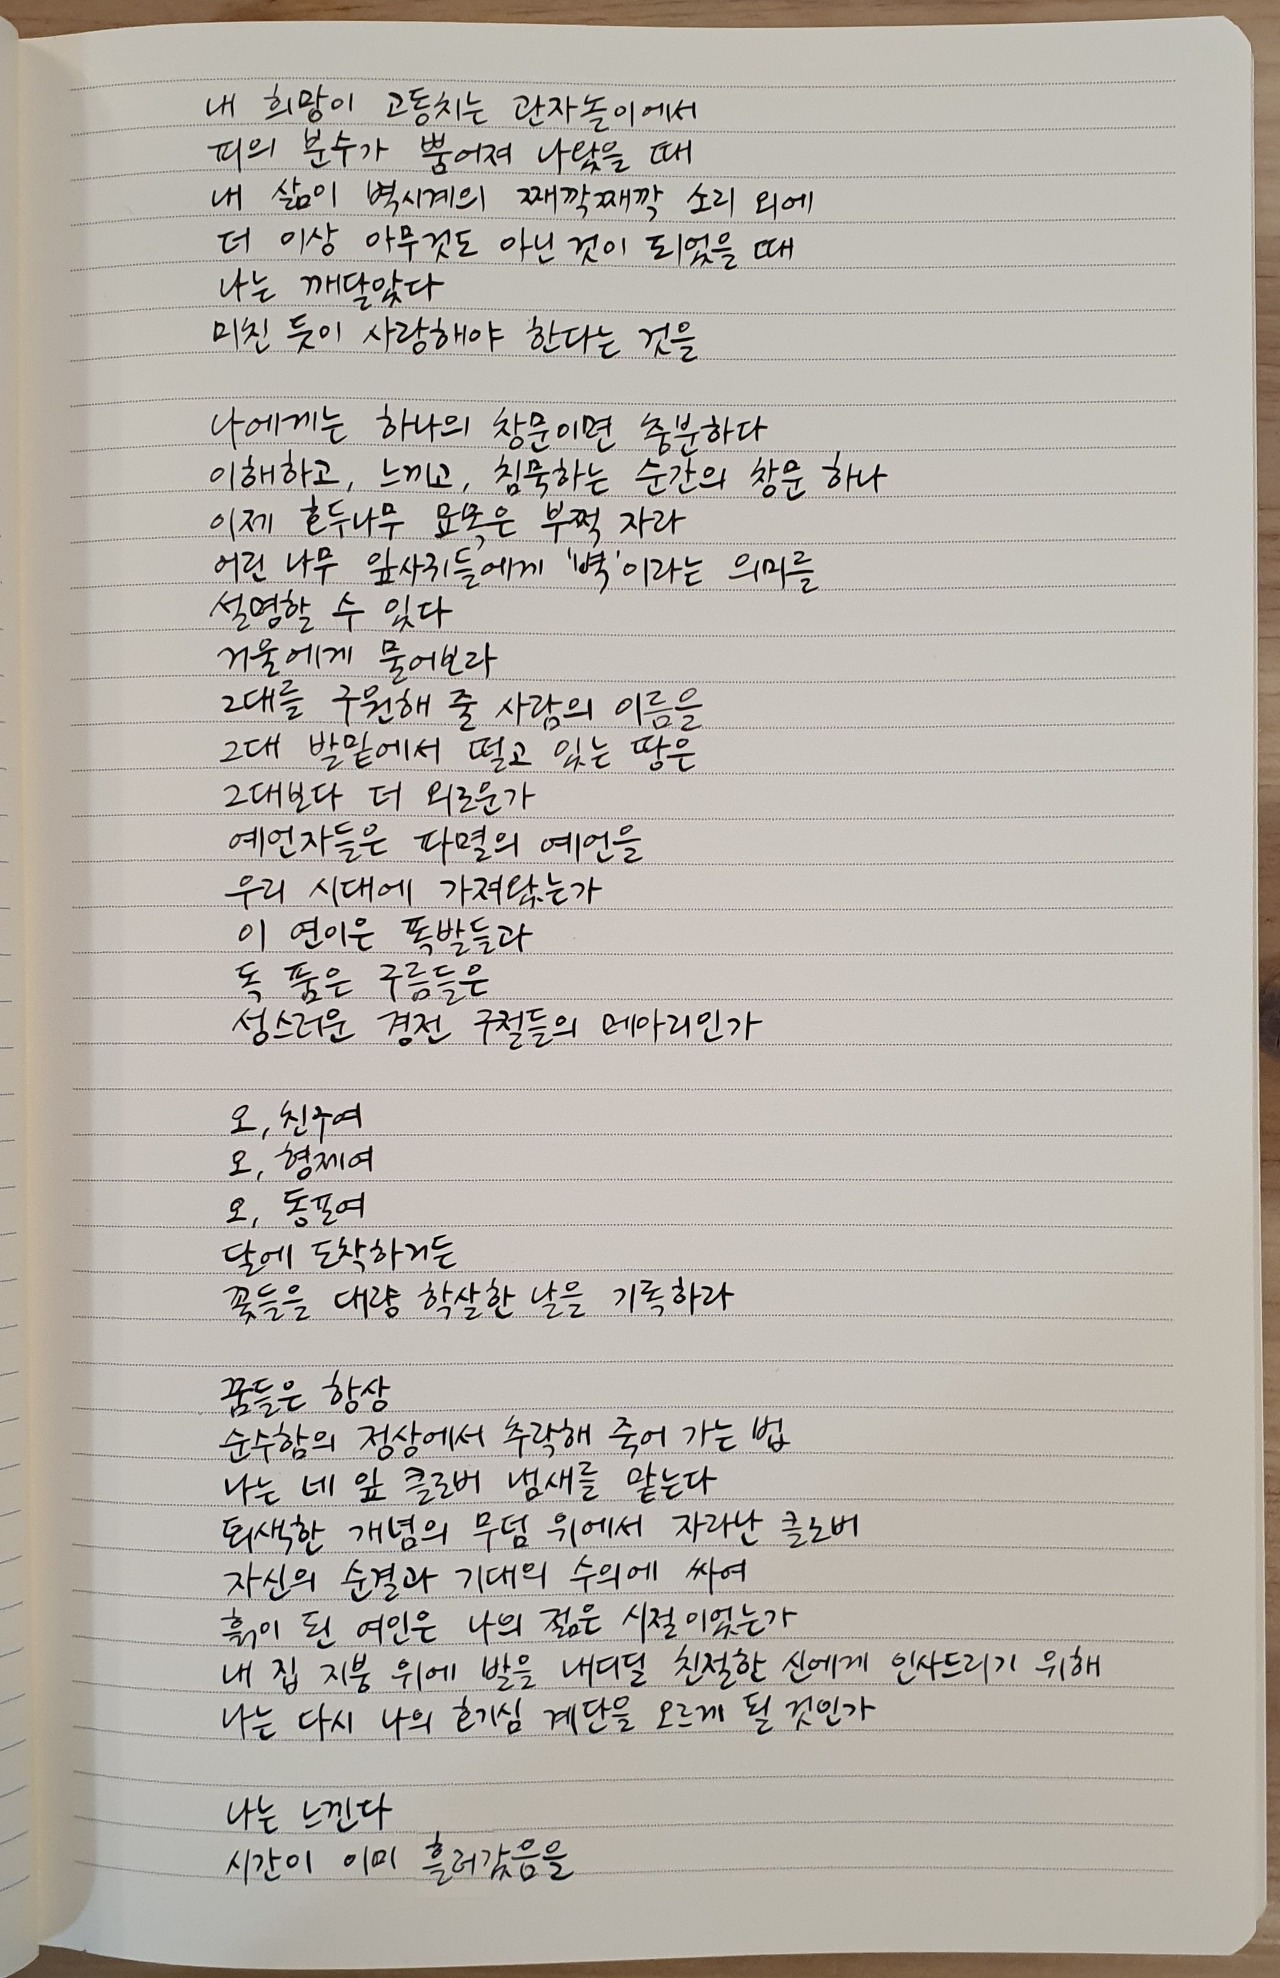 내 희망이 고동치는 관자놀이에서
피의 분수가 뿜어져 나왔을 때
내 삶이 벽시계의 째깍째깍 소리 외에
더 이상 아무것도 아닌 것이 되었을 때
나는 깨달았다
미친 듯이 사랑해야 한다는 것을
나에게는 하나의 창문이면 충분하다
이해하고, 느끼고, 침묵하는 순간의 창문 하나
이제 호두나무 묘목은 부쩍 자라
어린 나무 잎사귀들에게 '벽'이라는 의미를
설명할 수 있다
거울에게 물어보라
그대를 구원해 줄 사람의 이름을
그대 발밑에서 떨고 있는 땅은
그대보다 더 외로운가
예언자들은 파멸의 예언을
우리 시대에 가져왔는가
이 연이은 폭발들과
독 품은 구름들은
성스러운 경전 구절들의 메아리인가
오, 친구여
오, 형제여
오, 동포여
달에 도착하거든
꽃들을 대량 학살한 날을 기록하라
꿈들은 항상
순수함의 정상에서 추락해 죽어 가는 법
나는 네 잎 클로버 냄새를 맡는다
퇴색한 개념의 무덤 위에서 자라난 클로버
자신의 순결과 기대의 수의에 싸여
흙이 된 여인은 나의 젊은 시절이었는가
내 집 지붕 위에 발을 내디딜 친절한 신에게 인사드리기 위해
나는 다시 나의 호기심 계단을 오르게 될 것인가
나는 느낀다
시간이 이미 흘러갔음을